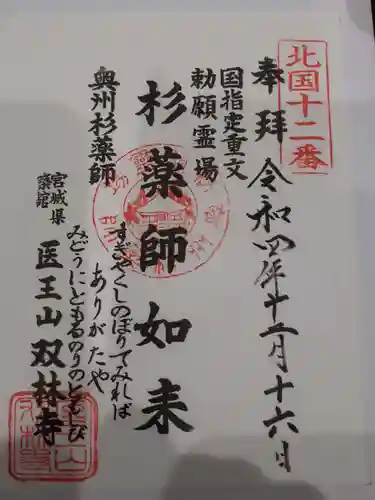 北国十二番
奉拝 令和四年十二月十六日
国指定重文
勅願霊場
杉薬師如来
奥州杉薬師
すぎやくしのぼりてみれば
ありがたや
みどうにともるのりのともしび
宮城県
築館
医王山双林寺